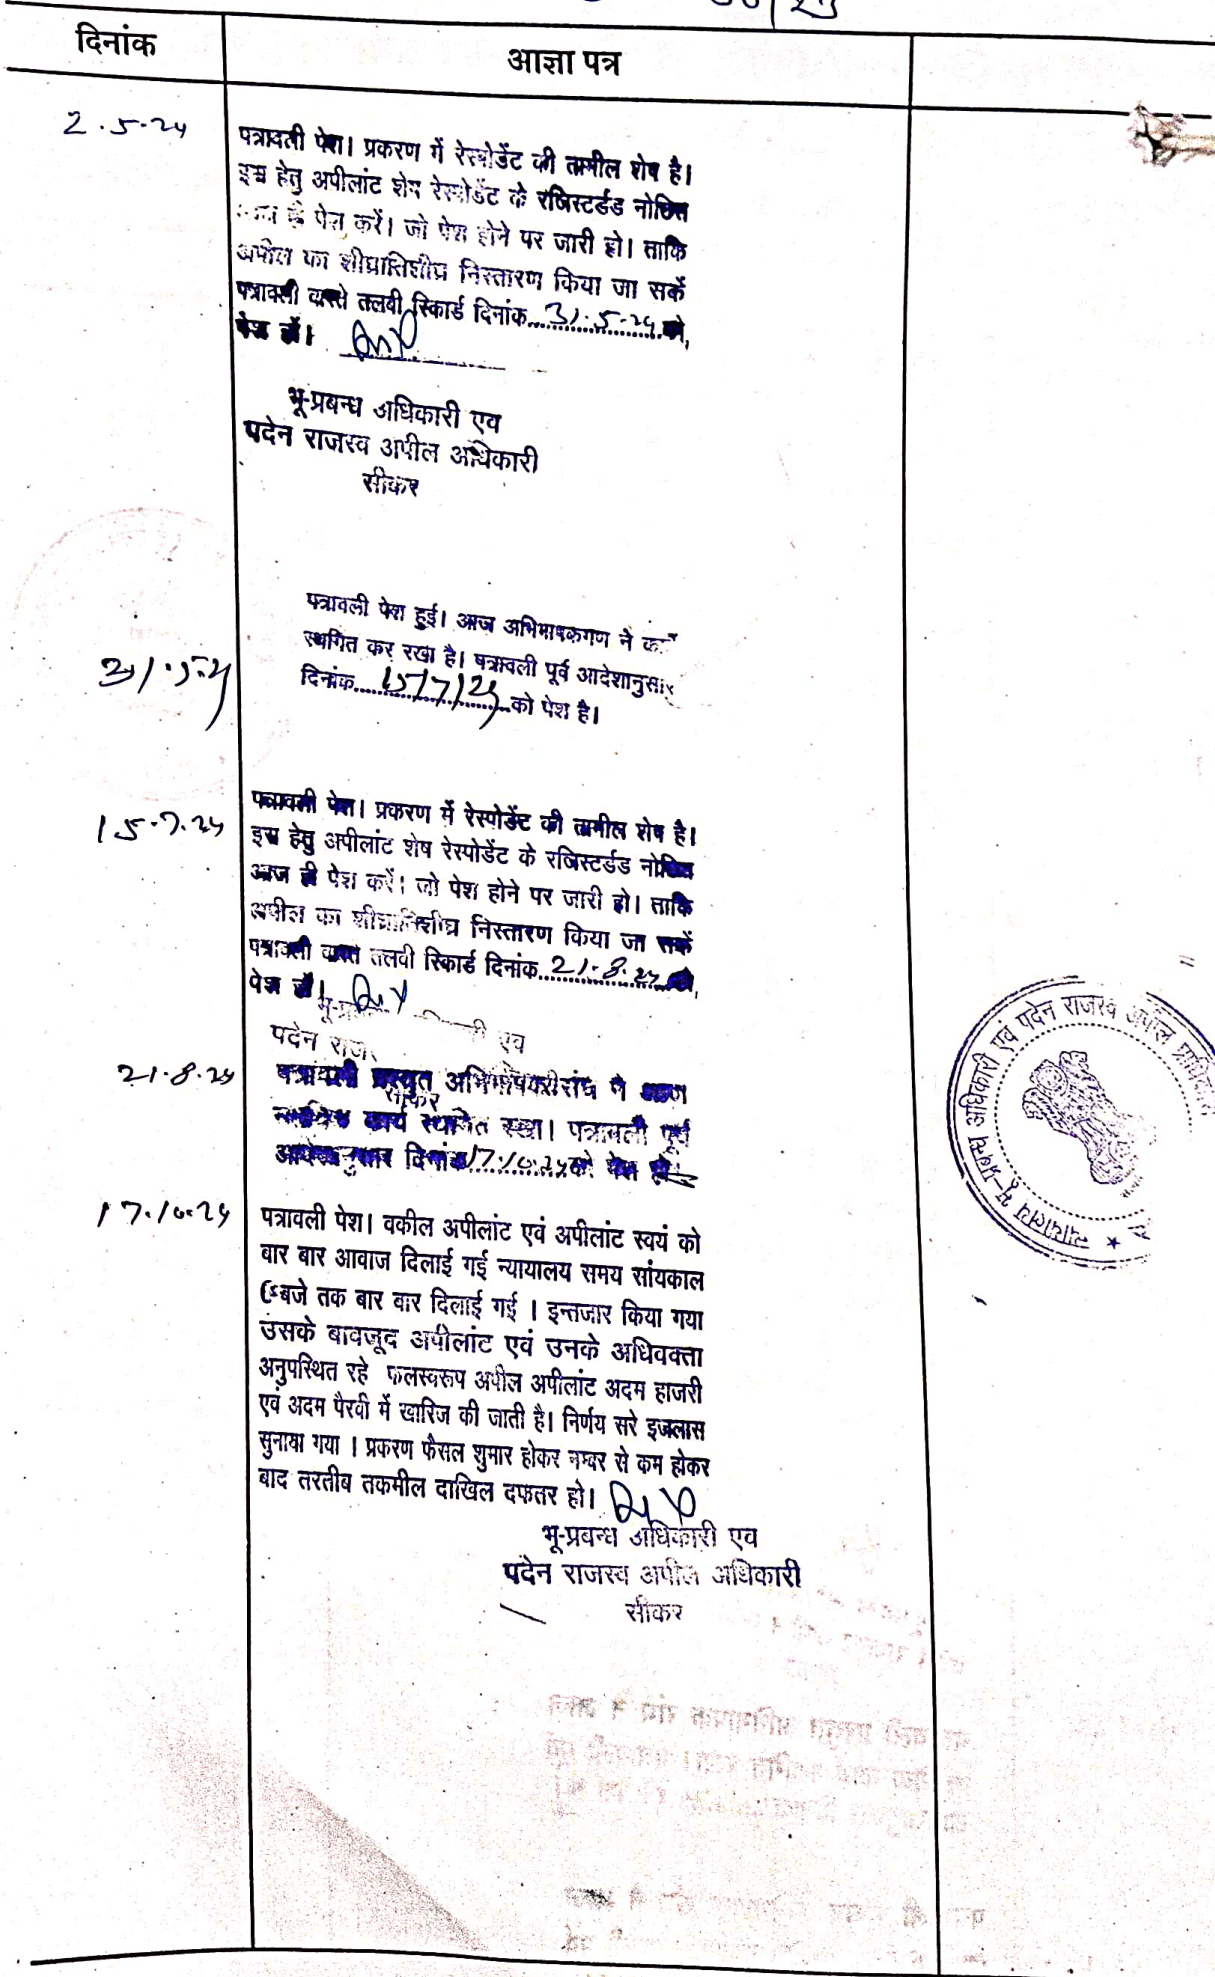 दिनांक
आज्ञा पत्र
2.5.24
पत्रावली पेश। प्रकरण में रेस्पोडेंट की तामील शेष है।
इस हेतु अपीलांट शेष रेस्पोडेंट के रजिस्टर्डड नोटिस
पेश करें। जो पेश होने पर जारी हो। ताकि
अपील का शीघ्रातिशीघ्र निस्तारण किया जा सकें
पत्रावली वास्ते तलबी रिकार्ड दिनांक 31.5.24 को,
पेश हों।
भू-प्रबन्ध अधिकारी एव
पदेन राजस्व अपील अधिकारी
सीकर
31.5.24
पत्रावली पेश हुई। आज अभिभाषकगण ने
स्थगित कर रखा है। पत्रावली पूर्व आदेशानुसार
दिनांक 15/7/24 को पेश है।
15.7.24
पत्रावली पेश। प्रकरण में रेस्पोडेंट की तामील शेष है।
इस हेतु अपीलांट शेष रेस्पोडेंट के रजिस्टर्डड नोटिस
आज ही पेश करें। जो पेश होने पर जारी हो। ताकि
अपील का शीघ्रातिशीघ्र निस्तारण किया जा सकें
पत्रावली वास्ते तलबी रिकार्ड दिनांक 21.8.24 को,
पेश हों।
एव
पदेन
सीकर
21.8.24
पत्रावली प्रस्तुत ने
कार्य स्थगित रखा। पत्रावली पूर्व
आदेशानुसार दिनांक 17.10.24 को पेश हो।
17.10.24
पत्रावली पेश। वकील अपीलांट एवं अपीलांट स्वयं को
बार बार आवाज दिलाई गई न्यायालय समय सांयकाल
बजे तक बार वार दिलाई गई । इन्तजार किया गया
उसके बावजूद अपीलांट एवं उनके अधिवक्ता
अनुपस्थित रहे फलस्वरूप अपील अपीलांट अदम हाजरी
एवं अदम पैरवी में खारिज की जाती है। निर्णय सरे इजलास
सुनाया गया । प्रकरण फैसल शुमार होकर नम्बर से कम होकर
बाद तरतीब तकमील दाखिल दफतर हो।
भू-प्रबन्ध अधिकारी एव
पदेन राजस्व अपील अधिकारी
सीकर
न्यायालय भू-प्रबन्ध अधिकारी एवं पदेन राजस्व अपील